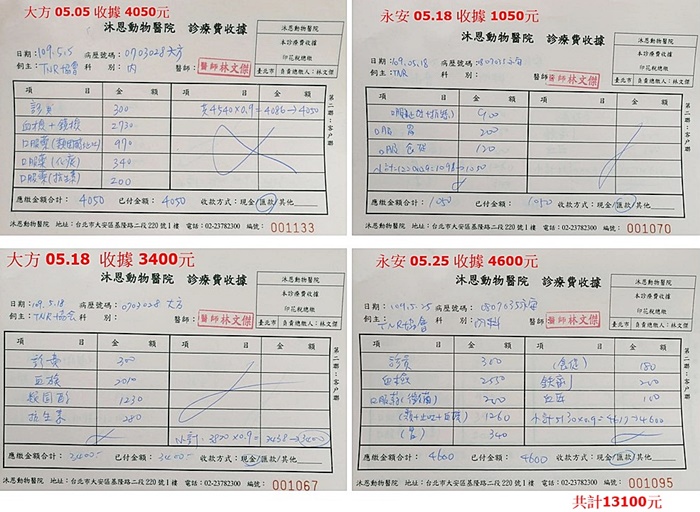 大方 05.05 收據 4050元
沐恩動物醫院 診療費收據
沐恩動物醫院
本診療費收據
印花稅總繳
臺北市 負責總繳人:林文傑
日期:109.5.5 病歷號碼:0703028 大方
飼主:TNR協會 科別:內 醫師:醫師林文傑
項 目 金 額 項 目 金 額
診費 300 共4540×0.9=4086→4050
血檢+鏡檢 2730
970
340
口服藥(抗生素) 200
第二聯:林久聯
應繳金額合計: 4050 已付金額: 4050 收款方式:現金/匯款/其他
沐恩動物醫院 地址:台北市大安區基隆路二段220號1樓 電話:02-23782300 編號: 001133
永安 05.18 收據 1050元
沐恩動物醫院 診療費收據
沐恩動物醫院
本診療費收據
印花稅總繳
臺北市 負責總繳人:林文傑
日期:109.05.18 病歷號碼:
飼主:TNR 科別: 醫師:醫師林文傑
項 目 金 額 項 目 金 額
900
口服 胃 200
口服 120
應繳金額合計: 1050 已付金額: 1050 收款方式:現金/匯款/其他
沐恩動物醫院 地址:台北市大安區基隆路二段220號1樓 電話:02-23782300 編號: 001070
大方 05.18 收據 3400元
沐恩動物醫院 診療費收據
沐恩動物醫院
本診療費收據
印花稅總繳
臺北市 負責總繳人:林文傑
日期:109.5.18 病歷號碼:0703028 大方
飼主:TNR協會 科別: 醫師:醫師林文傑
項 目 金 額 項 目 金 額
診費 300
血檢 2010
1230
抗生素 280
小計:3820×0.9=3438→3400
應繳金額合計: 3400 已付金額: 3400 收款方式:現金/匯款/其他
沐恩動物醫院 地址:台北市大安區基隆路二段220號1樓 電話:02-23782300 編號: 001067
永安 05.25 收據 4600元
沐恩動物醫院 診療費收據
沐恩動物醫院
本診療費收據
印花稅總繳
臺北市 負責總繳人:林文傑
日期:109.5.25 病歷號碼:0807035永安
飼主:TNR協會 科別:內科 醫師:醫師林文傑
項 目 金 額 項 目 金 額
診費 300 180
血檢 2550 鐵劑 200
口服藥 200 血压 100
1260 小計5130×0.9=4617→4600
(胃) 340
應繳金額合計: 4600 已付金額: 4600 收款方式:現金/匯款/其他
沐恩動物醫院 地址:台北市大安區基隆路二段220號1樓 電話:02-23782300 編號: 001095
共計13100元